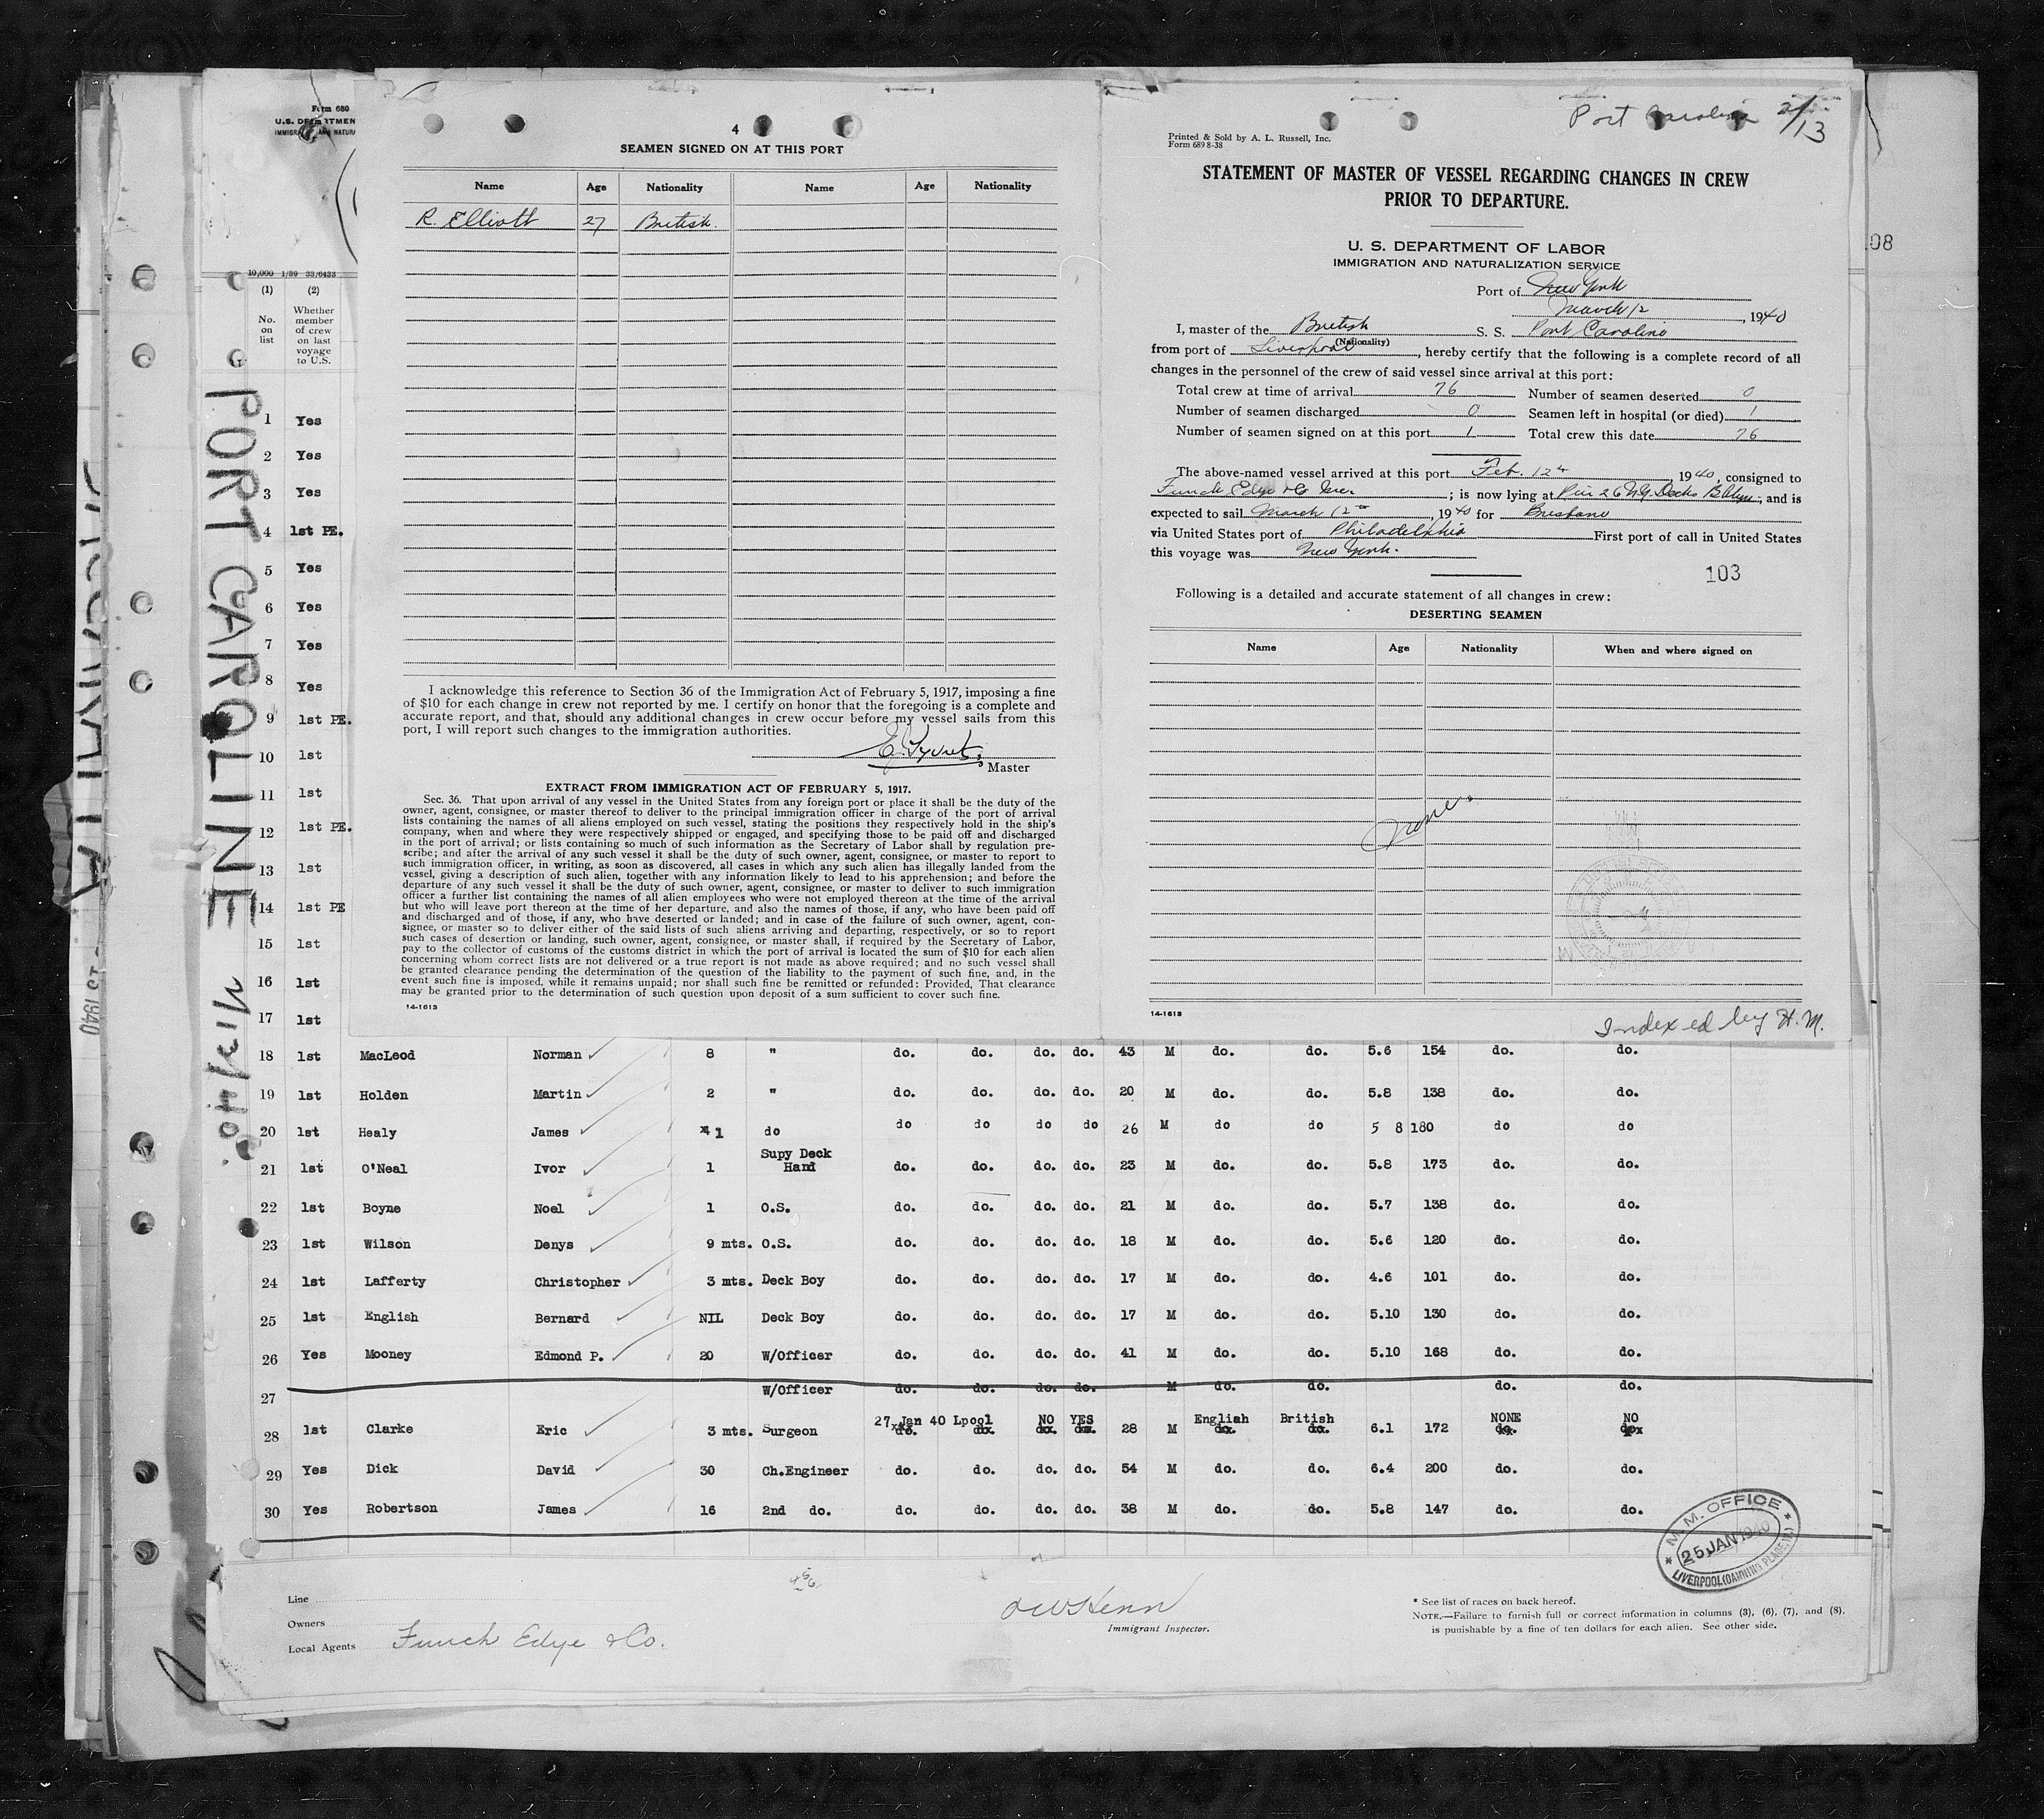 Form 680
U.S. DEPARTMEN
IMMIGRA AND NATURA
10,000 1/39 33/6433
(1) (2)
No. on list
Whether member of crew on last voyage to U.S.
PORT CAROLINE
4
SEAMEN SIGNED ON AT THIS PORT
Name Age Nationality Name Age Nationality
R. Elliott 27 British.
I acknowledge this reference to Section 36 of the Immigration Act of February 5, 1917, imposing a fine
of $10 for each change in crew not reported by me. I certify on honor that the foregoing is a complete and
accurate report, and that, should any additional changes in crew occur before my vessel sails from this
port, I will report such changes to the immigration authorities.
Master
EXTRACT FROM IMMIGRATION ACT OF FEBRUARY 5, 1917.
Sec. 36. That upon arrival of any vessel in the United States from any foreign port or place it shall be the duty of the
owner, agent, consignee, or master thereof to deliver to the principal immigration officer in charge of the port of arrival
lists containing the names of all aliens employed on such vessel, stating the positions they respectively hold in the ship's
company, when and where they were respectively shipped or engaged, and specifying those to be paid off and discharged
in the port of arrival; or lists containing so much of such information as the Secretary of Labor shall by regulation pre-
scribe; and after the arrival of any such vessel it shall be the duty of such owner, agent, consignee, or master to report to
such immigration officer, in writing, as soon as discovered, all cases in which any such alien has illegally landed from the
vessel, giving a description of such alien, together with any information likely to lead to his apprehension; and before the
departure of any such vessel it shall be the duty of such owner, agent, consignee, or master to deliver to such immigration
officer a further list containing the names of all alien employees who were not employed thereon at the time of the arrival
but who will leave port thereon at the time of her departure, and also the names of those, if any, who have been paid off
and discharged and of those, if any, who have deserted or landed; and in case of the failure of such owner, agent, con-
signee, or master so to deliver either of the said lists of such aliens arriving and departing, respectively, or so to report
such cases of desertion or landing, such owner, agent, consignee, or master shall, if required by the Secretary of Labor,
pay to the collector of customs of the customs district in which the port of arrival is located the sum of $10 for each alien
concerning whom correct lists are not delivered or a true report is not made as above required; and no such vessel shall
be granted clearance pending the determination of the question of the liability to the payment of such fine, and, in the
event such fine is imposed, while it remains unpaid; nor shall such fine be remitted or refunded: Provided, That clearance
may be granted prior to the determination of such question upon deposit of a sum sufficient to cover such fine.
14-1613
Port Caroline 2/13
Printed & Sold by A. L. Russell, Inc.
Form 689 8-38
STATEMENT OF MASTER OF VESSEL REGARDING CHANGES IN CREW
PRIOR TO DEPARTURE.
U. S. DEPARTMENT OF LABOR
IMMIGRATION AND NATURALIZATION SERVICE
Port of New York
March 12, 1940
I, master of the British S. S. Port Caroline
(Nationality)
from port of Liverpool, hereby certify that the following is a complete record of all
changes in the personnel of the crew of said vessel since arrival at this port:
Total crew at time of arrival 76 Number of seamen deserted 0
Number of seamen discharged 0 Seamen left in hospital (or died) 1
Number of seamen signed on at this port 1 Total crew this date 76
The above-named vessel arrived at this port Feb. 12th 1940, consigned to
Funch Edye & Co Inc; is now lying at Pier 26 N.Y. Docks Bklyn, and is
expected to sail March 12th, 1940 for Brisbane
via United States port of Philadelphia First port of call in United States
this voyage was New York.
103
Following is a detailed and accurate statement of all changes in crew:
DESERTING SEAMEN
Name Age Nationality When and where signed on
None.
14-1613
Indexed by H. M.
08
1 Yes
2 Yes
3 Yes
4 1st PE.
5 Yes
6 Yes
7 Yes
8 Yes
9 1st PE.
10 1st
11 1st
12 1st PE.
13 1st
14 1st PE
15 1st
16 1st
17 1st
18 1st MacLeod Norman 8 " do. do. do. do. 43 M do. do. 5.6 154 do. do.
19 1st Holden Martin 2 " do. do. do. do. 20 M do. do. 5.8 138 do. do.
20 1st Healy James 1 do do do do do 26 M do do 5 8 180 do do
21 1st O'Neal Ivor 1 Supy Deck Hand do. do. do. do. 23 M do. do. 5.8 173 do. do.
22 1st Boyne Noel 1 O.S. do. do. do. do. 21 M do. do. 5.7 138 do. do.
23 1st Wilson Denys 9 mts. O.S. do. do. do. do. 18 M do. do. 5.6 120 do. do.
24 1st Lafferty Christopher 3 mts. Deck Boy do. do. do. do. 17 M do. do. 4.6 101 do. do.
25 1st English Bernard NIL Deck Boy do. do. do. do. 17 M do. do. 5.10 130 do. do.
26 Yes Mooney Edmond P. 20 W/Officer do. do. do. do. 41 M do. do. 5.10 168 do. do.
27 W/Officer do. do. do. do. M do. do. do. do.
28 1st Clarke Eric 3 mts. Surgeon 27 Jan 40 Lpool NO YES 28 M English British 6.1 172 NONE NO
29 Yes Dick David 30 Ch.Engineer do. do. do. do. 54 M do. do. 6.4 200 do. do.
30 Yes Robertson James 16 2nd do. do. do. do. do. 38 M do. do. 5.8 147 do. do.
M. M. OFFICE
25 JAN 1940
LIVERPOOL (CANNING PLACE, W.)
Line
Owners
Local Agents Funch Edye & Co.
Immigrant Inspector.
* See list of races on back hereof.
NOTE.—Failure to furnish full or correct information in columns (3), (6), (7), and (8),
is punishable by a fine of ten dollars for each alien. See other side.